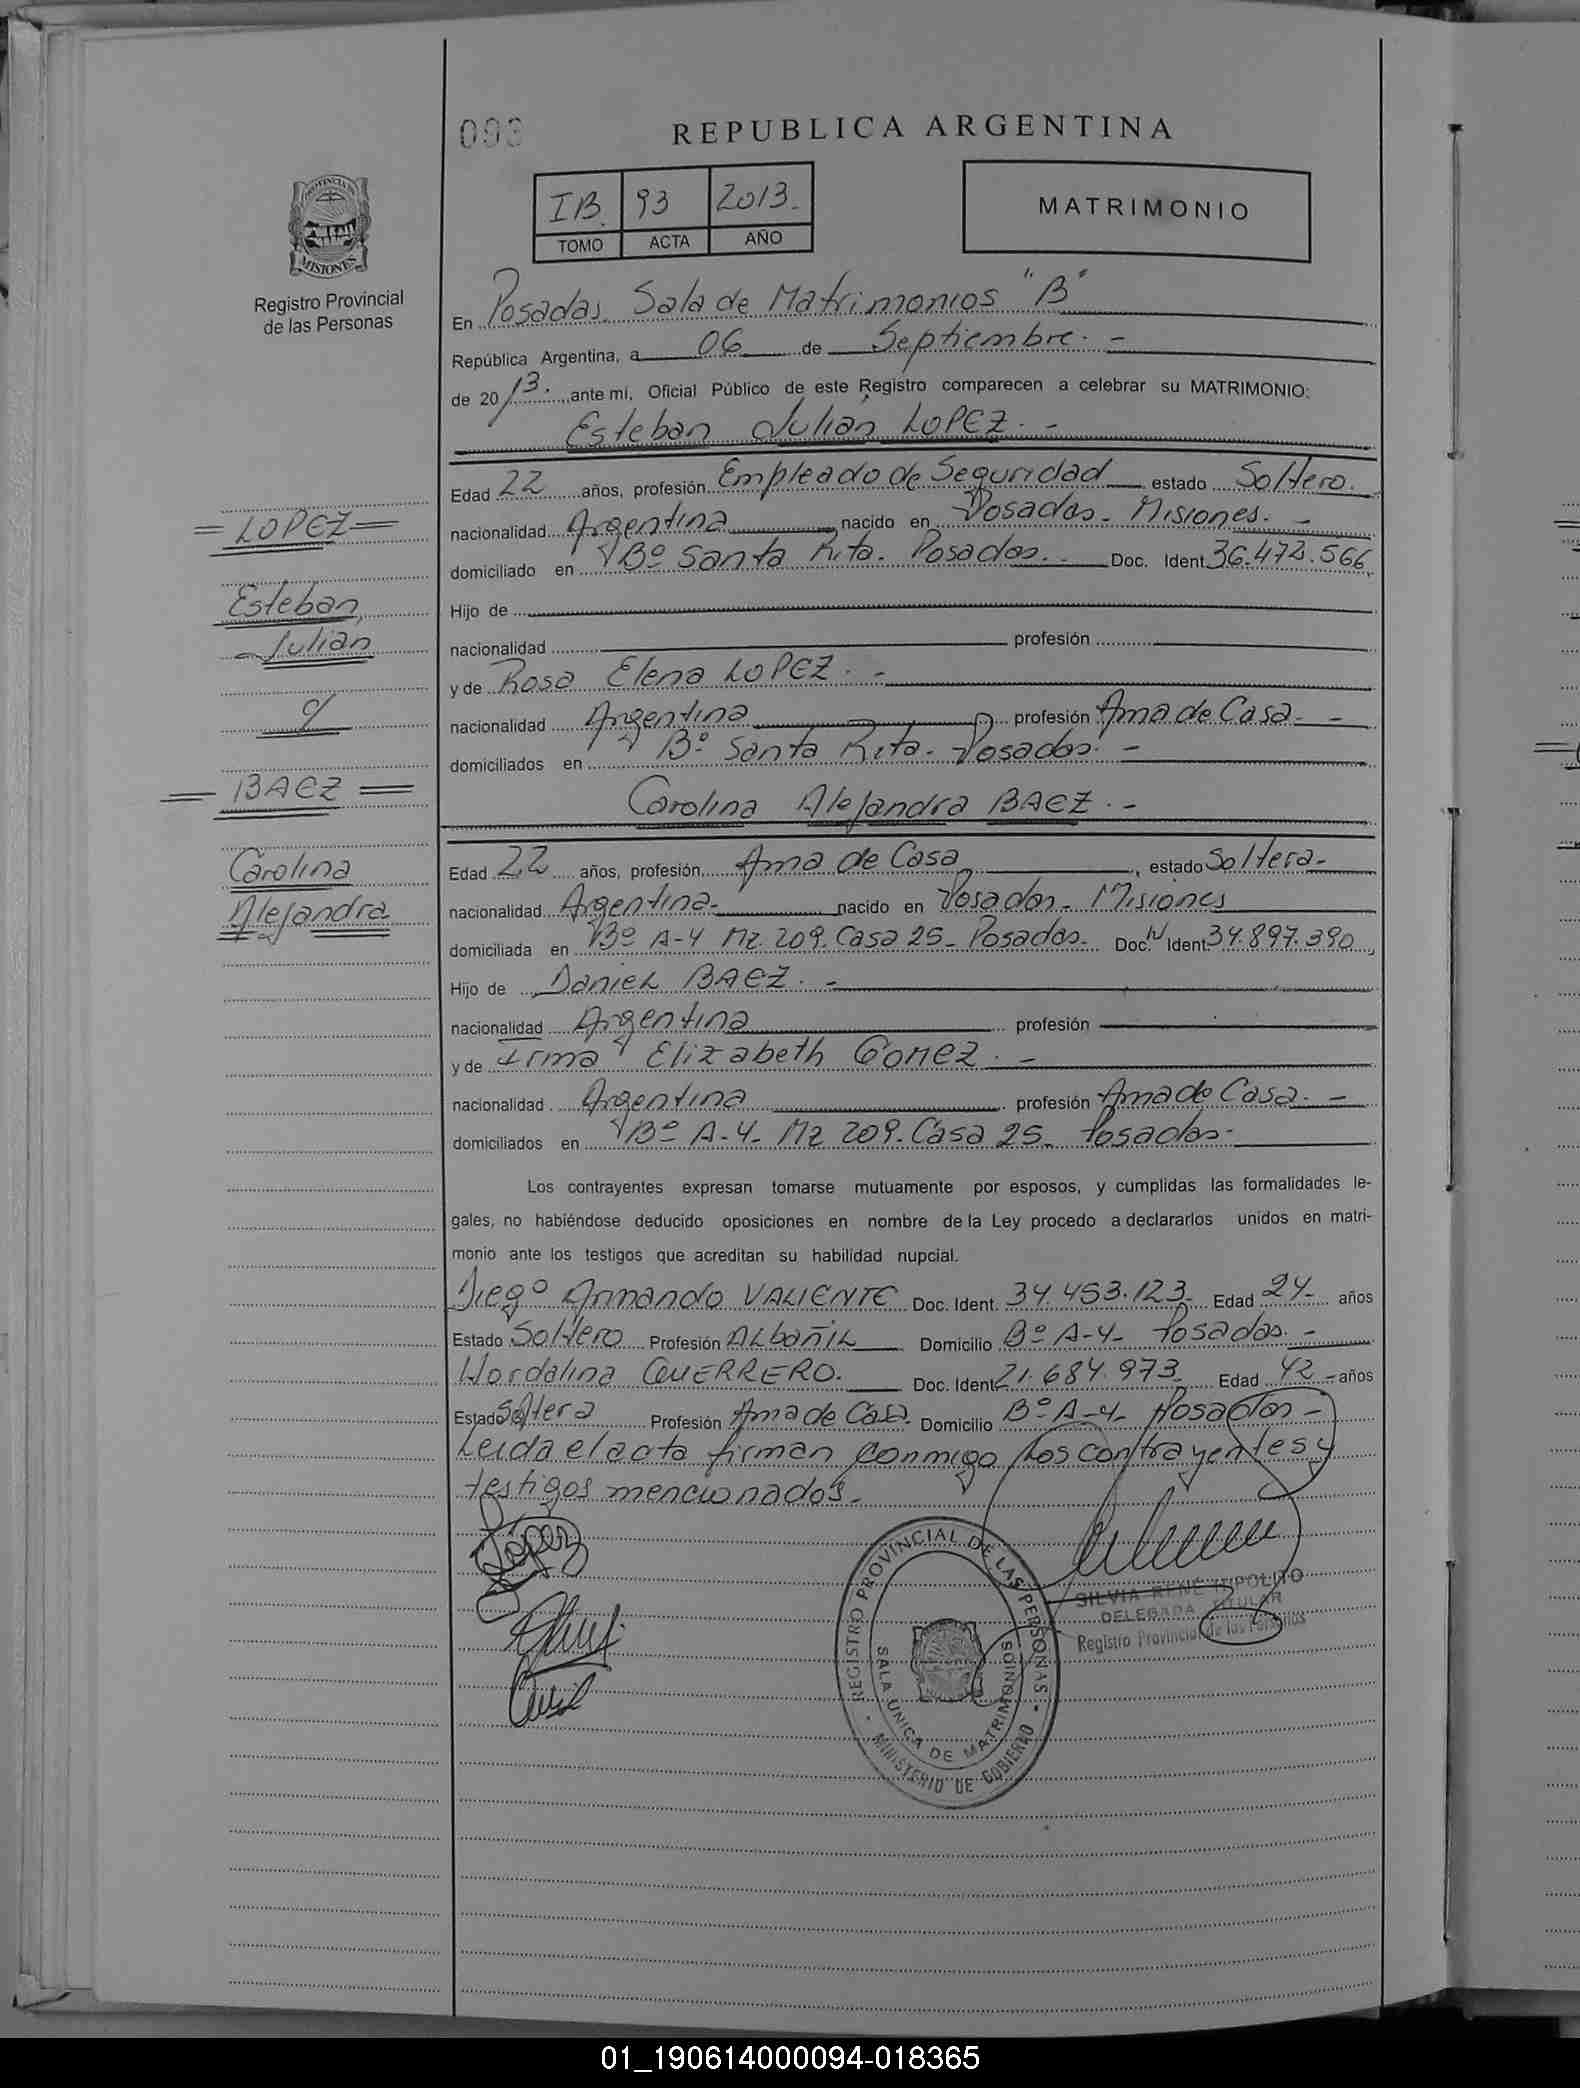 093
REPUBLICA ARGENTINA
IB. 93 2013.
TOMO ACTA AÑO
MATRIMONIO
PROVINCIA DE
MISIONES
Registro Provincial
de las Personas
En Posadas. Sala de Matrimonios "B"
República Argentina, a 06 de Septiembre. -
de 2013. ante mí, Oficial Público de este Registro comparecen a celebrar su MATRIMONIO:
Esteban Julian LOPEZ. -
Edad 22 años, profesión Empleado de Seguridad estado Soltero.
= LOPEZ =
nacionalidad Argentina nacido en Posadas - Misiones. -
domiciliado en Bº Santa Rita. Posadas. - Doc. Ident 36.472.566
Esteban
Hijo de
Julian
nacionalidad profesión
y de Rosa Elena LOPEZ. -
c/
nacionalidad Argentina profesión Ama de Casa. -
domiciliados en Bº Santa Rita - Posadas. -
= BAEZ =
Carolina Alejandra BAEZ. -
Carolina
Edad 22 años, profesión Ama de Casa, estado Soltera-
Alejandra
nacionalidad Argentina- nacido en Posadas - Misiones
domiciliada en Bº A-4 Mz. 209. Casa 25 - Posadas- Doc. Ident 34.897.390
Hijo de Daniel BAEZ. -
nacionalidad Argentina profesión
y de Irma Elizabeth GOMEZ. -
nacionalidad Argentina profesión Ama de Casa. -
domiciliados en Bº A-4- Mz 209. Casa 25- Posadas-
Los contrayentes expresan tomarse mutuamente por esposos, y cumplidas las formalidades le-
gales, no habiéndose deducido oposiciones en nombre de la Ley procedo a declararlos unidos en matri-
monio ante los testigos que acreditan su habilidad nupcial.
Diego Armando VALIENTE Doc. Ident. 34.453.123- Edad 24- años
Estado Soltero Profesión Albañil Domicilio Bº A-4- Posadas. -
Wordalina GUERRERO. Doc. Ident 21.684.973 Edad 42 - años
Estado Soltera Profesión Ama de Casa. Domicilio Bº A-4- Posadas -
Leida el acta firman conmigo los contrayentes y
testigos mencionados-
López
REGISTRO PROVINCIAL DE LAS PERSONAS
SALA UNICA DE MATRIMONIOS
MINISTERIO DE GOBIERNO
SILVIA RENE HIPOLITO
DELEGADA TITULAR
Registro Provincial de las Personas
01_190614000094-018365